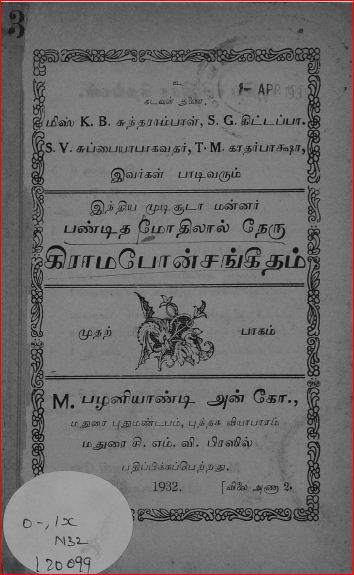 3
உ
1- APR
கடவுள் துணை.
மிஸ் K. B. சுந்தராம்பாள், S. G. கிட்டப்பா.
S. V. சுப்பையாபாகவதர், T. M. காதர்பாக்ஷா,
இவர்கள் பாடிவரும்
இந்திய முடிசூடா மன்னர்
பண்டித மோதிலால் நேரு
கிராமபோன்சங்கீதம்
முதற் பாகம்
M. பழனியாண்டி அன் கோ.,
மதுரை புதுமண்டபம், புத்தக வியாபாரம்
மதுரை சி. எம். வி. பிரஸில்
பதிப்பிக்கப்பெற்றது.
1932. [விலை அணா 2.
0-, 1x
N32
120099